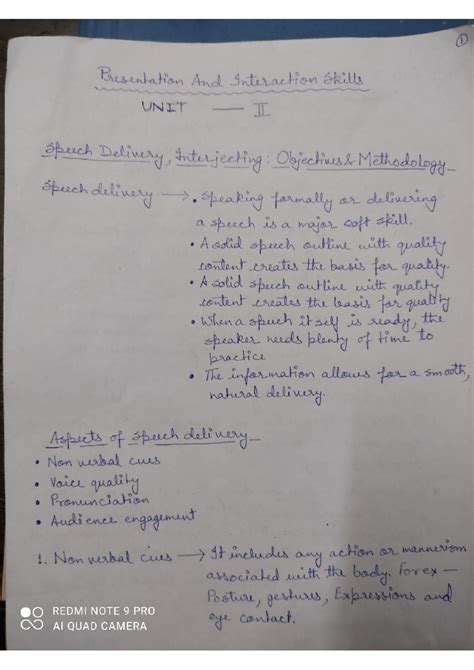 ①
Presentation And Interaction Skills
UNIT — II
Speech Delivery, Interjecting: Objectives & Methodology
Speech delivery → • Speaking formally or delivering
a speech is a major soft skill.
• A solid speech outline with quality
content creates the basis for quality.
• A solid speech outline with quality
content creates the basis for quality
• When a speech itself is ready, the
speaker needs plenty of time to
practice
• The information allows for a smooth,
natural delivery.
Aspects of speech delivery
• Non verbal cues
• Voice quality
• Pronunciation
• Audience engagement
1. Non verbal cues → It includes any action or mannerism
associated with the body. For ex –
Posture, gestures, Expressions and
eye contact.
REDMI NOTE 9 PRO
AI QUAD CAMERA